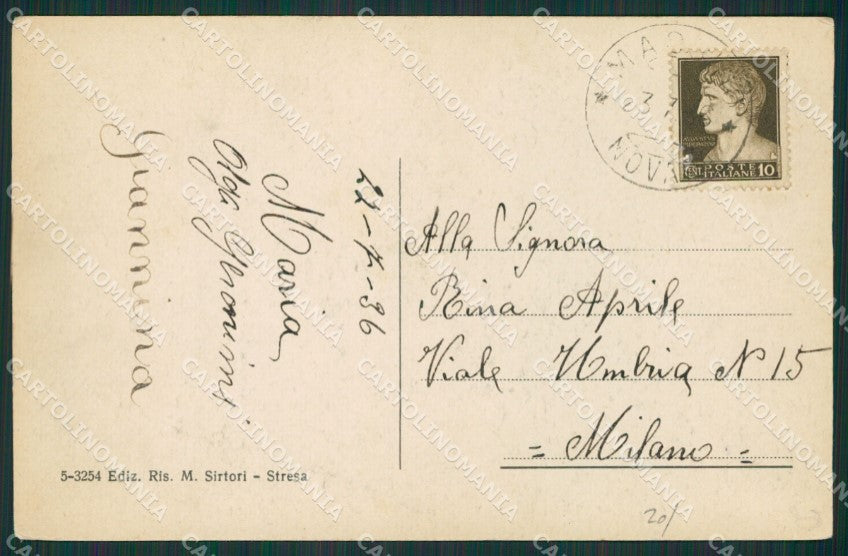 22-7-36
Maria
Olga Geronimi
Giannina
5-3254 Ediz. Ris. M. Sirtori - Stresa
NOVA
POSTE
CENT. ITALIANE 10
Alla Signora
Rina Aprile
Viale Umbria N 15
= Milano =
20/
CARTOLINOMANIA